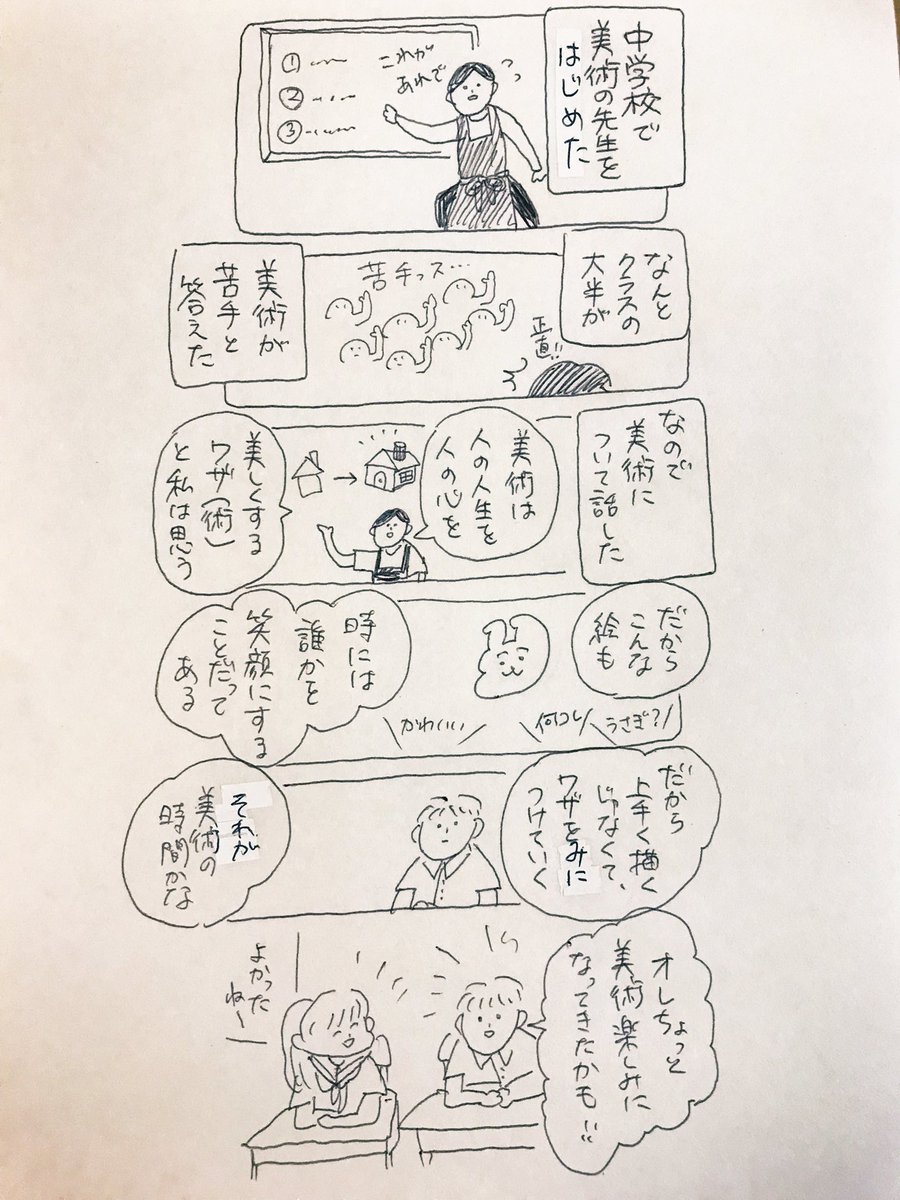 中学校で
美術の先生を
はじめた
これが
あれで
①
②
③
なんと
クラスの
大半が
苦手っス…
正直!!
美術が
苦手と
答えた
なので
美術に
ついて話した
美術は
人の人生を
人の心を
美しくする
ワザ(術)
と私は思う
だから
こんな
絵も
うさぎ?
何コレ
かわいい
時には
誰かを
笑顔にする
ことだって
ある
だから
上手く描く
じゃなくて、
ワザをみに
つけていく
それが
美術の
時間かな
オレちょっと
美術楽しみに
なってきたかも!!
よかった
ねー